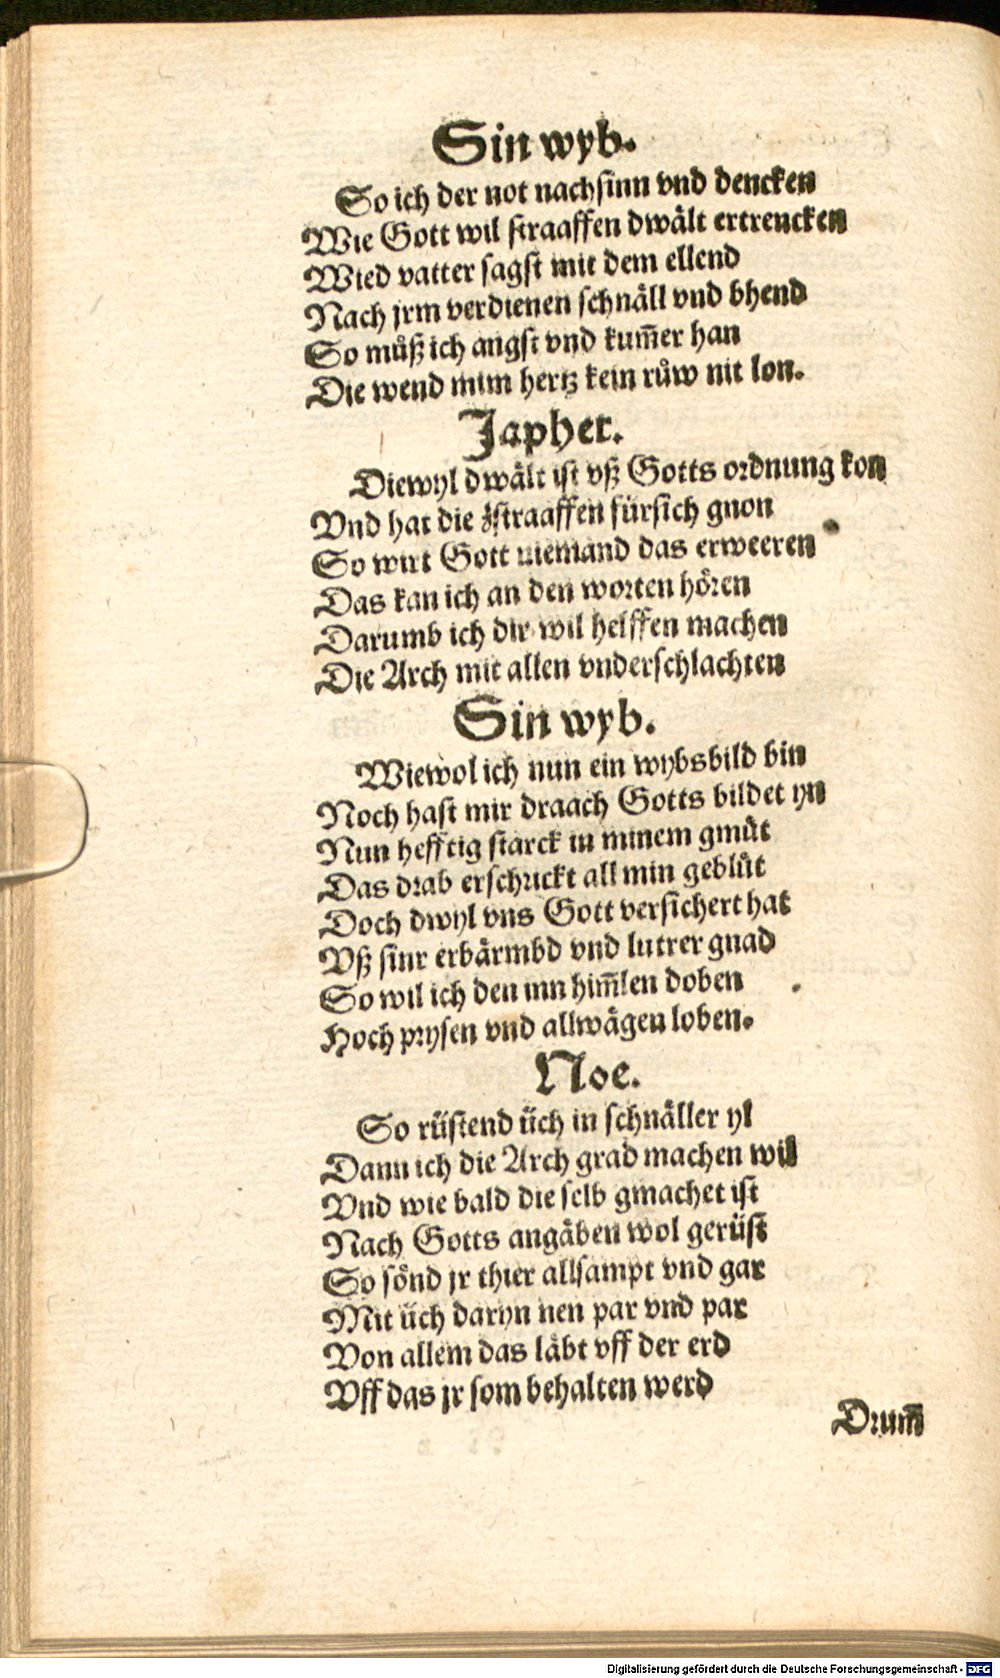 Sin wyb.
So ich der not nachsinn vnd dencken
Wie Gott wil straaffen dwält ertrencken
Wied vatter sagst mit dem ellend
Nach jrm verdienen schnäll vnd bhend
So můß ich angst vnd kum̄er han
Die wend mim hertz kein růw nit lon.
Japhet.
Diewyl dwält ist vß Gotts ordnung kon
Vnd hat die zstraaffen fürsich gnon
So wirt Gott niemand das erweeren
Das kan ich an den worten hören
Darumb ich dir wil helffen machen
Die Arch mit allen vnderschlachten
Sin wyb.
Wiewol ich nun ein wybsbild bin
Noch hast mir draach Gotts bildet yn
Nun hefftig starck in minem gmüt
Das drab erschrickt all min geblüt
Doch dwyl vns Gott versichert hat
Vß sinr erbärmbd vnd lutrer gnad
So wil ich den inn him̄len doben
Hoch prysen vnd allwägen loben.
Noe.
So rüstend üch in schnäller yl
Dann ich die Arch grad machen wil
Vnd wie bald die selb gmachet ist
Nach Gotts angäben wol gerüst
So sönd jr thier allsampt vnd gar
Mit üch daryn nen par vnd par
Von allem das läbt vff der erd
Vff das jr som behalten werd
Drum̄
Digitalisierung gefördert durch die Deutsche Forschungsgemeinschaft - DFG